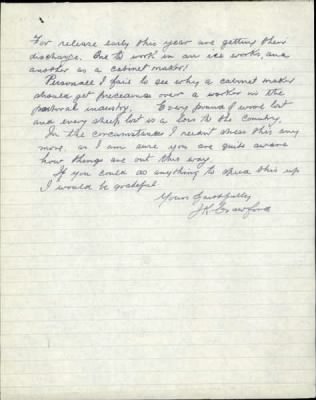 For release early this year are getting their
discharge. One to work in an ice works, and
another as a cabinet maker!
Personall I fail to see why a cabinet maker
should get precedence over a worker in the
pastoral industry. Every pound of wool lost
and every sheep lost is a loss to the country.
In the circumstances I neednt stress this any
more, as I am sure you are quite aware
how things are out this way
If you could do anything to speed this up
I would be grateful
Yours faithfully
J K Crawford